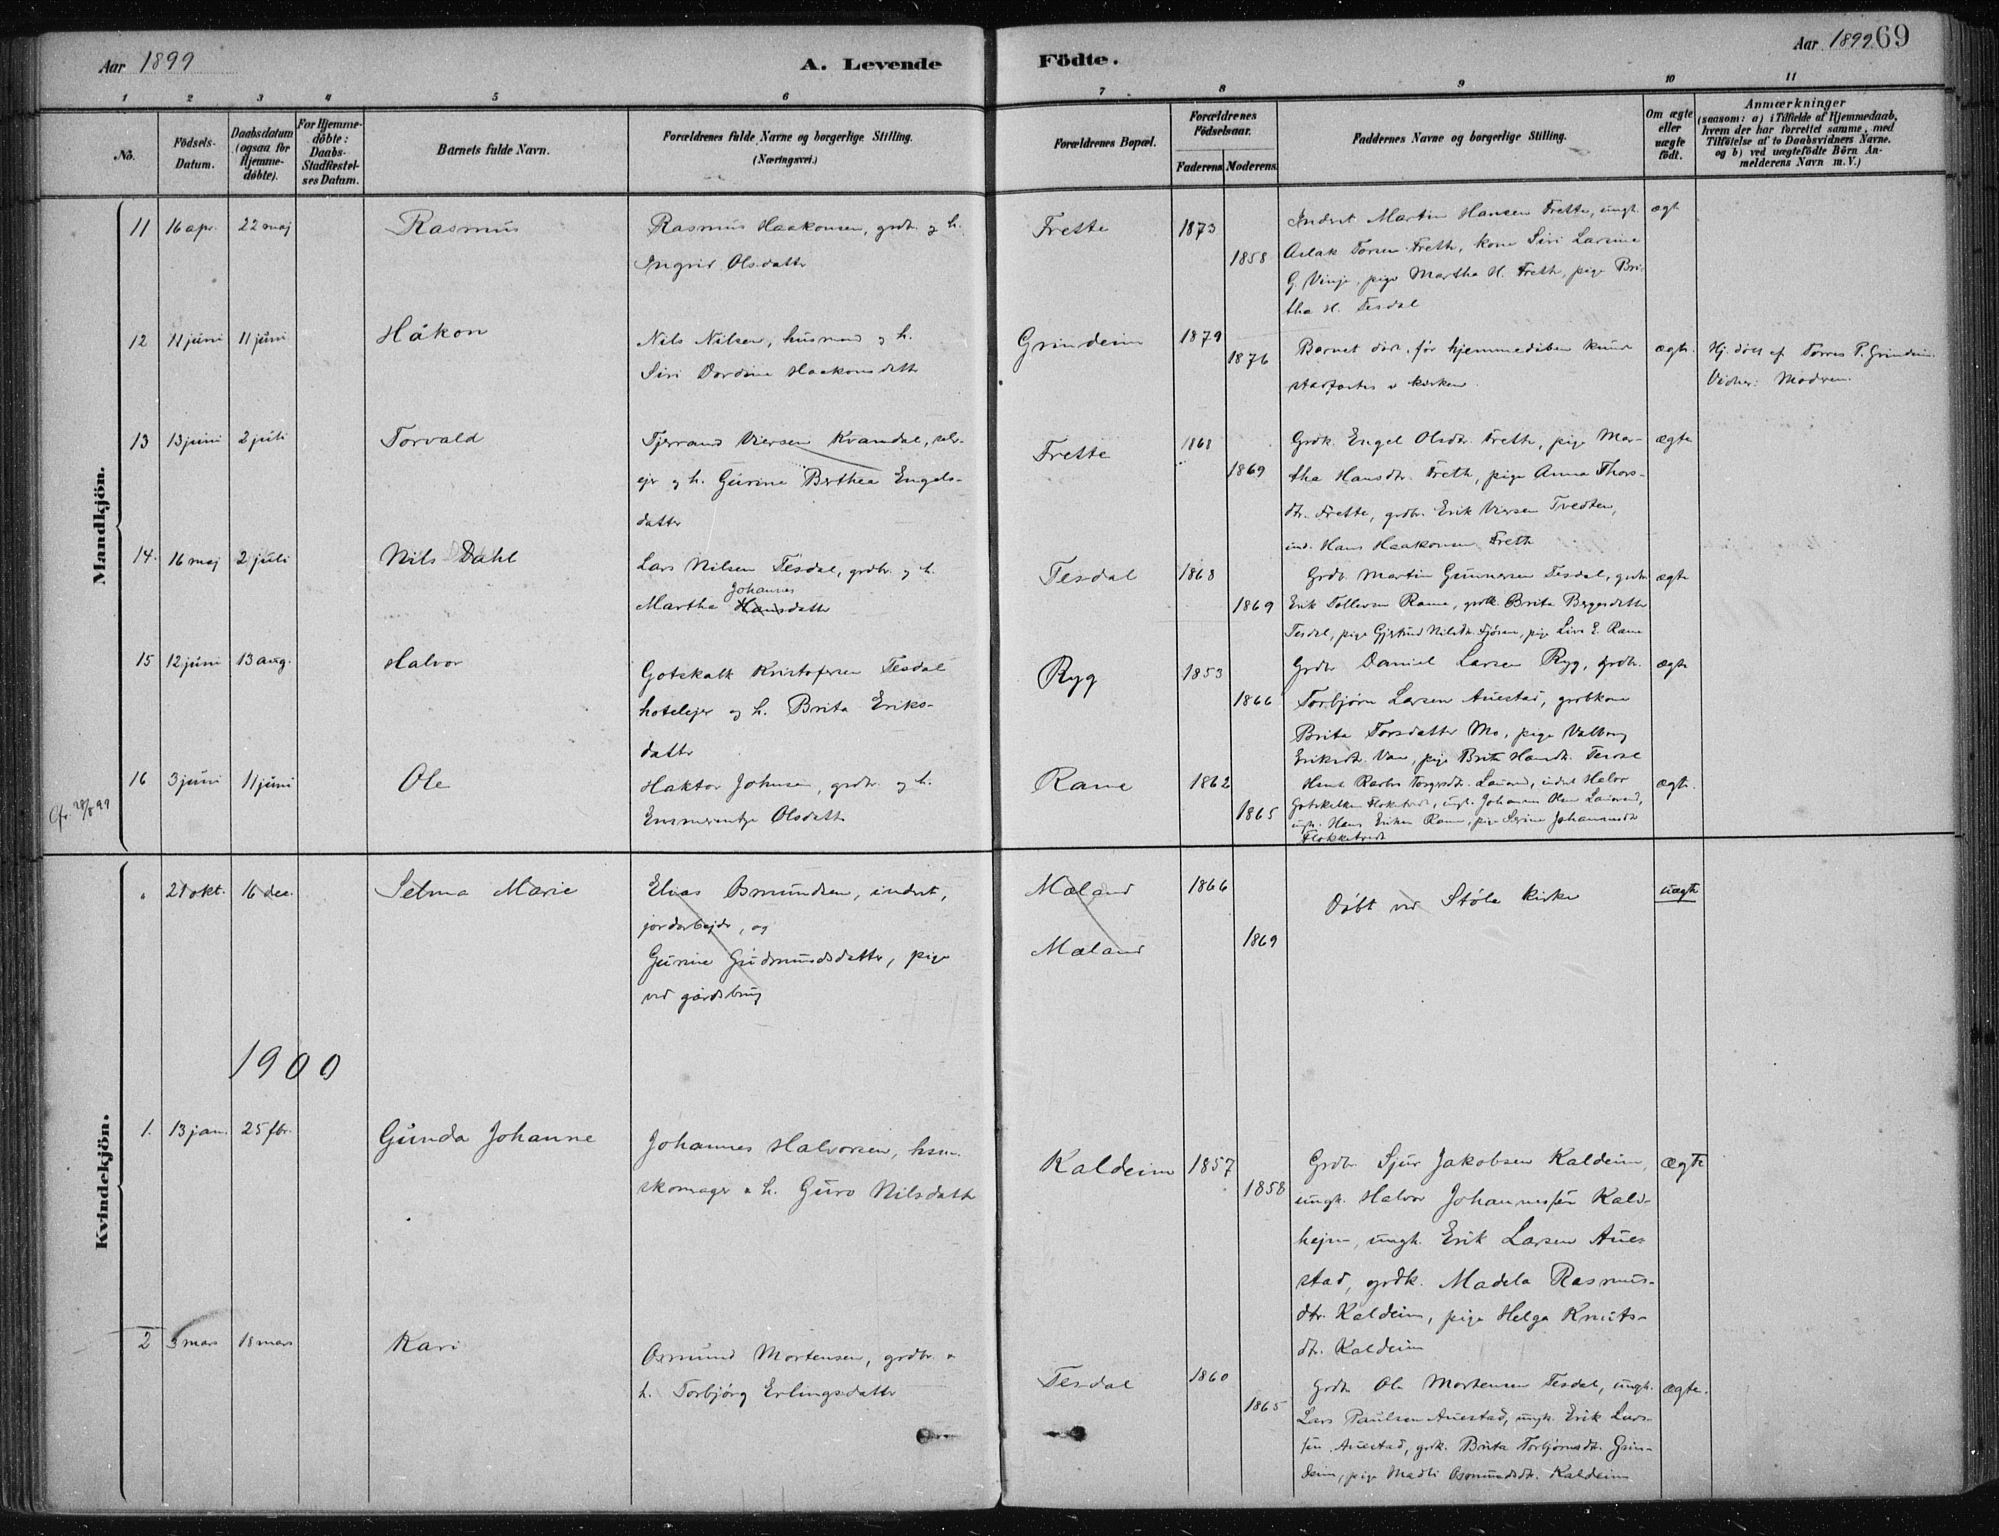 Aar 1899
A. Levende
Födte.
Aar 1899
69
1 2 3 4 5 6 7 8 9 10 11
No.
Födsels-
Datum.
Daabsdatum
(ogsaa for
Hjemme-
döbte).
For Hjemme-
döbte:
Daabs-
Stadfæstel-
ses Datum.
Barnets fulde Navn.
Forældrenes fulde Navne og borgerlige Stilling.
(Næringsvei.)
Forældrenes Bopæl.
Forældrenes
Födselsaar.
Faderens Moderens
Faddernes Navne og borgerlige Stilling.
Om ægte
eller
uægte
födt.
Anmærkninger
(saasom: a) i Tilfælde af Hjemmedaab,
hvem der har forrettet samme, med
Tilföielse af to Daabsvidners Navne,
og b) ved uægtefödte Börn An-
melderens Navn m. V.)
Mandkjön.
11 16 apr. 22 maj
Rasmus
Rasmus Haakonsen, grdbr. og h.
Ingrid Olsdatter
Frette
1873
1858
Inderst Martin Hansen Frette, ungk.
Aslak Torsen Freth, kone Siri Larsine
G. Vinje, pige Martha H. Freth, pige Bri-
tha H. Tesdal
ægt
12 11 juni 11 juni
Håkon
Nils Nilsen, husmand og h.
Siri Dordine Haakonsdatt
Grindeim
1879
1876
Barnet døde før hjemmedåben kunde
stadfæstes i kirken
ægte.
Hj. døbt af Torres P. Grindeim.
Vidner: Moderen.
13 13 juni 2 juli
Torvald
Tjerrand Viersen Kvandal, selv-
ejer og h. Gurine Berthea Engels-
datter
Frette
1868
1869
Grdk. Engel Olsdtr. Freth, pige Mar-
tha Hansdtr. Freth, pige Anna Thors-
dtr. Frette, grdbr. Erik Viersen Tvedten,
ind. Hans Haakonsen Freth
ægte
14. 16 maj 2 juli
Nils Dahl
Lars Nilsen Tesdal, grdbr. og h.
Johannes
Martha Hansdatter
Tesdal
1868
1869
Grdb. Martin Gunnarsen Tesdal, grdbr.
Erik Tollevsen Rame, grdk. Brita Børgesdatter
Tesdal, pige Gjertrud Nilsdtr. Fjøsen, pige Liva E. Rame
ægte
15 12 juni 13 aug.
Halvor
Gotskalk Kristofersen Tesdal
hotelejer og h. Brita Eriks-
datter
Ryg
1853
1866
Grdbr. Daniel Larsen Ryg, Grdbr.
Torbjörn Larsen Auestad, grdbkone
Brita Torsdatter Mo, pige Valborg
Eriksdt. , pige Brita Hansdt.
ægte
16 3 juni 11 juni
Cfr. 28/8 99
Ole
Haktor Johnsen, grdbr. og h.
Emmerentze Olsdatter
Rame
1862
1865
Torgersdtr. , inderst Halvor
Gotskalksen , ungk. Johannes Olsen ,
ungk. Hans Eriksen Rame, pige Serine Johannesdtr.
Flokketvedt
ægte.
Kvindekjön.
21 okt. 16 dec.
Selma Marie
Elias Osmundsen, inderst,
jordarbejder, og
Gurine Gudmundsdatter, pige
ved gårdsbrug
Mæland
Mæland
1866
1869
Døbt ved Støle kirke
uægte
1900
1. 13 jan. 25 fbr.
Gunda Johanne
Johannes Halvorsen, hsm.
skomager & h. Guro Nilsdatter
Kaldeim
1857
1858
Grdbr. Sjur Jakobsen Kaldeim,
ungk. Halvor Johannessen Kald-
hejm, ungk. Erik Larsen Aue-
stad, grdk. Madela Rasmus-
dtr. Kaldeim, pige Helga Knuts-
dt. Kaldeim
ægte
2 3 mars 18 mars
Kari
Osmund Mortensen, grdbr. &
h. Torbjörg Erlingsdatter
Tesdal
1860
1865
Grdb. Ole Mortensen Tesdal, ungk.
Lars Paulsen Auestad, ungk. Erik Lars-
sen Auestad, grdk. Brita Torbjörnsdt. Grin-
deim, pige Madli Osmundsdt. Kaldeim
ægte.